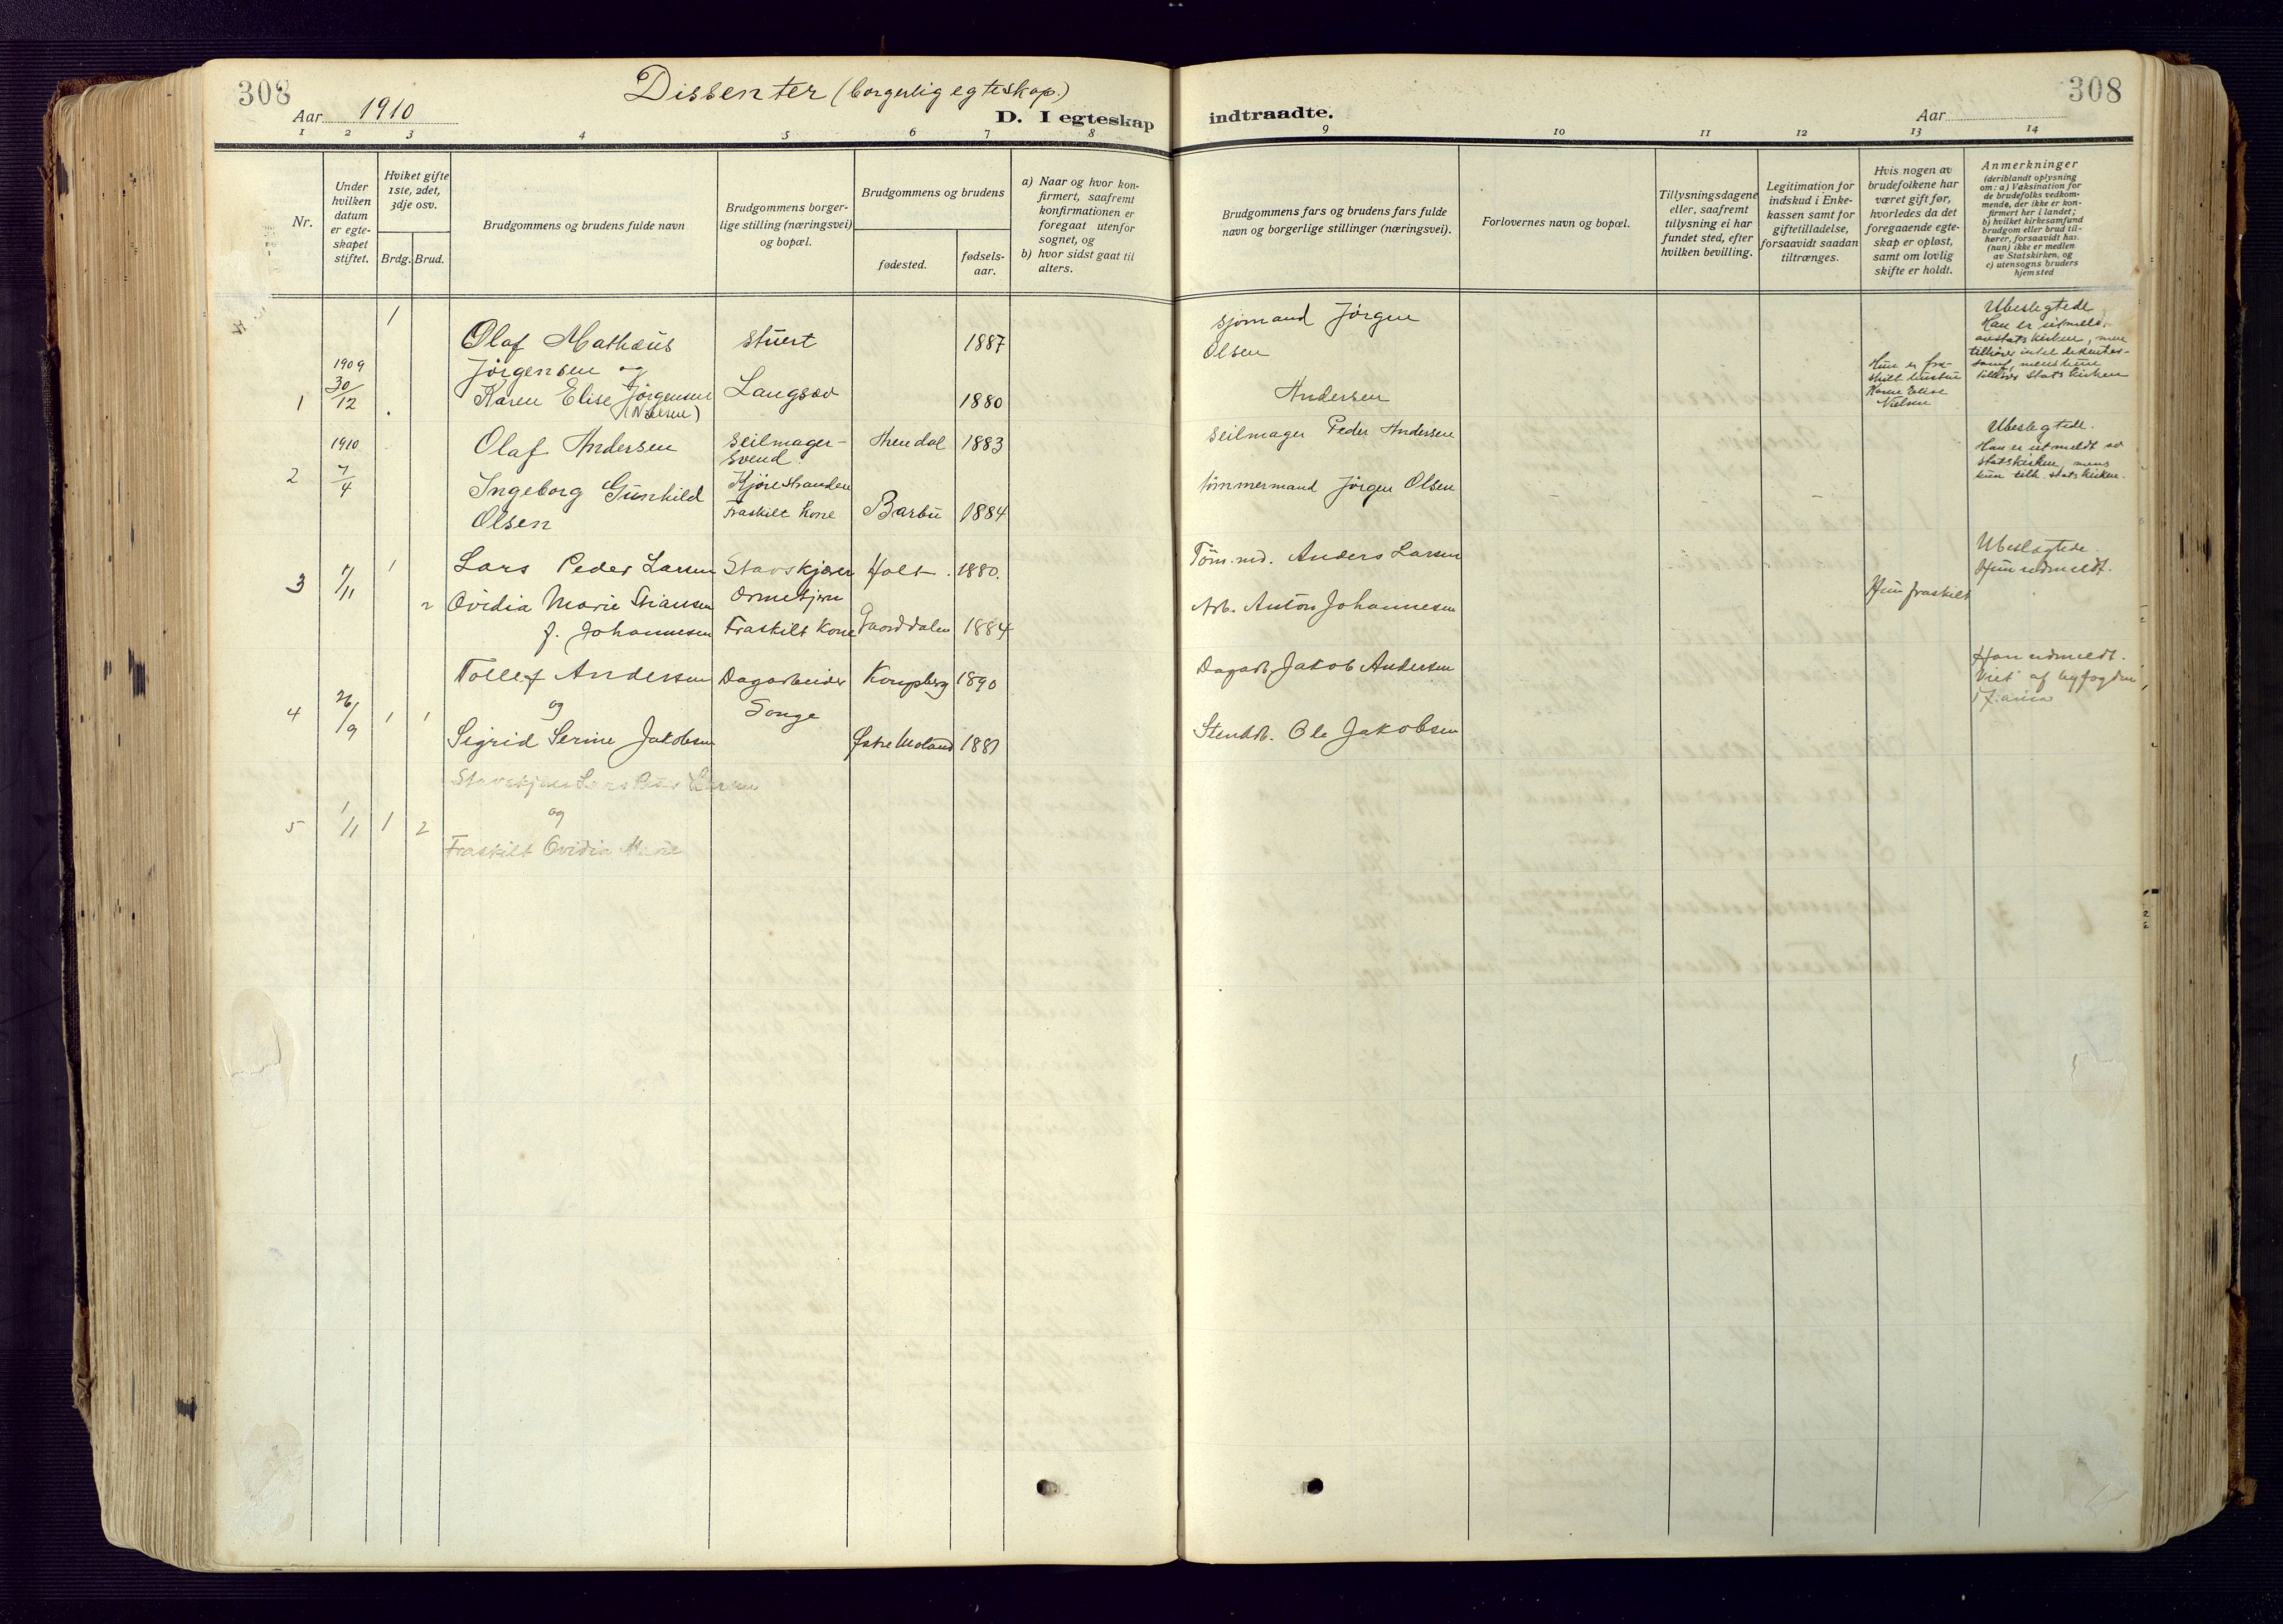 308
Dissenter (borgerlig egteskap.)
308
Aar 1910
D. I egteskap
indtraadte.
Aar
1 2 3 4 5 6 7 8 9 10 11 12 13 14
Nr.
Under
hvilken
datum
er egte-
skapet
stiftet.
Hviket gifte
1ste, 2det,
3dje osv.
Brdg.
Brud.
Brudgommens og brudens fulde navn
Brudgommens borger-
lige stilling (næringsvei)
og bopæl.
Brudgommens og brudens
fødested.
fødsels-
aar.
a) Naar og hvor kon-
firmert, saafremt
konfirmationen er
foregaat utenfor
sognet, og
b) hvor sidst gaat til
alters.
Brudgommens fars og brudens fars fulde
navn og borgerlige stillinger (næringsvei).
Forlovernes navn og bopæl.
Tillysningsdagene
eller, saafremt
tillysning ei har
fundet sted, efter
hvilken bevilling.
Legitimation for
indskud i Enke-
kassen samt for
giftetilladelse,
forsaavidt saadan
tiltrænges.
Hvis nogen av
brudefolkene har
været gift før,
hvorledes da det
foregaaende egte-
skap er opløst,
samt om lovlig
skifte er holdt.
Anmerkninger
(deriblandt oplysning
om: a) Vaksination for
de brudefolks vedkom-
mende, der ikke er kon-
firmert her i landet;
b) hvilket kirkesamfund
brudgom eller brud til-
hører, forsaavidt han
(hun) ikke er medlem
av Statskirken, og
c) utensogns bruders
hjemsted
1
Olaf Mathæus stuert 1887
Jörgensen og
1909
30/12
1
Karen Elise Jörgensen Langsæv 1880
(Nielsen)
sjömand Jörgen
Olsen
Andersen
Hun er fra-
skilt hustru
Karen Elise
Nielsen
Ubeslegtede.
Han er utmeldt
av statskirken, men
tilhører intet dissenter-
samf, mens hun
tilhører Statskirken
1910
2
7/4
Olaf Andersen seilmager- Arendal 1883
svend
Ingeborg Gunhild Kjörestranden
Olsen Fraskilt kone Barbu 1884
seilmager Peder Andersen
tömmermand Jörgen Olsen
Ubeslegtede.
Han er utmeldt av
statskirken, mens
hun tilh. statskirken.
3 1/11 1
Lars Peder Larsen Stavskjærer Holt 1880.
2 Ovidia Marie
f. Johannesen Fraskilt kone 1884
Töm.md. Anders Larsen
Arb. Anton Johannesen
Hun fraskilt
Ubeslægtede.
Hun udmeldt.
4 26/9 1 1
Tollef Andersen Dagarbeider Kongsberg 1890
og Songe
Sigrid Serine Jakobsen Østre Moland 1881
Dagarb. Jakob Andersen
Stenarb. Ole Jakobsen
Han udmeldt.
Viet af byfogden
i Xania
5 1/11 1 2
Stavskjærer Lars Peder Larsen
og
Fraskilt Ovidia Marie